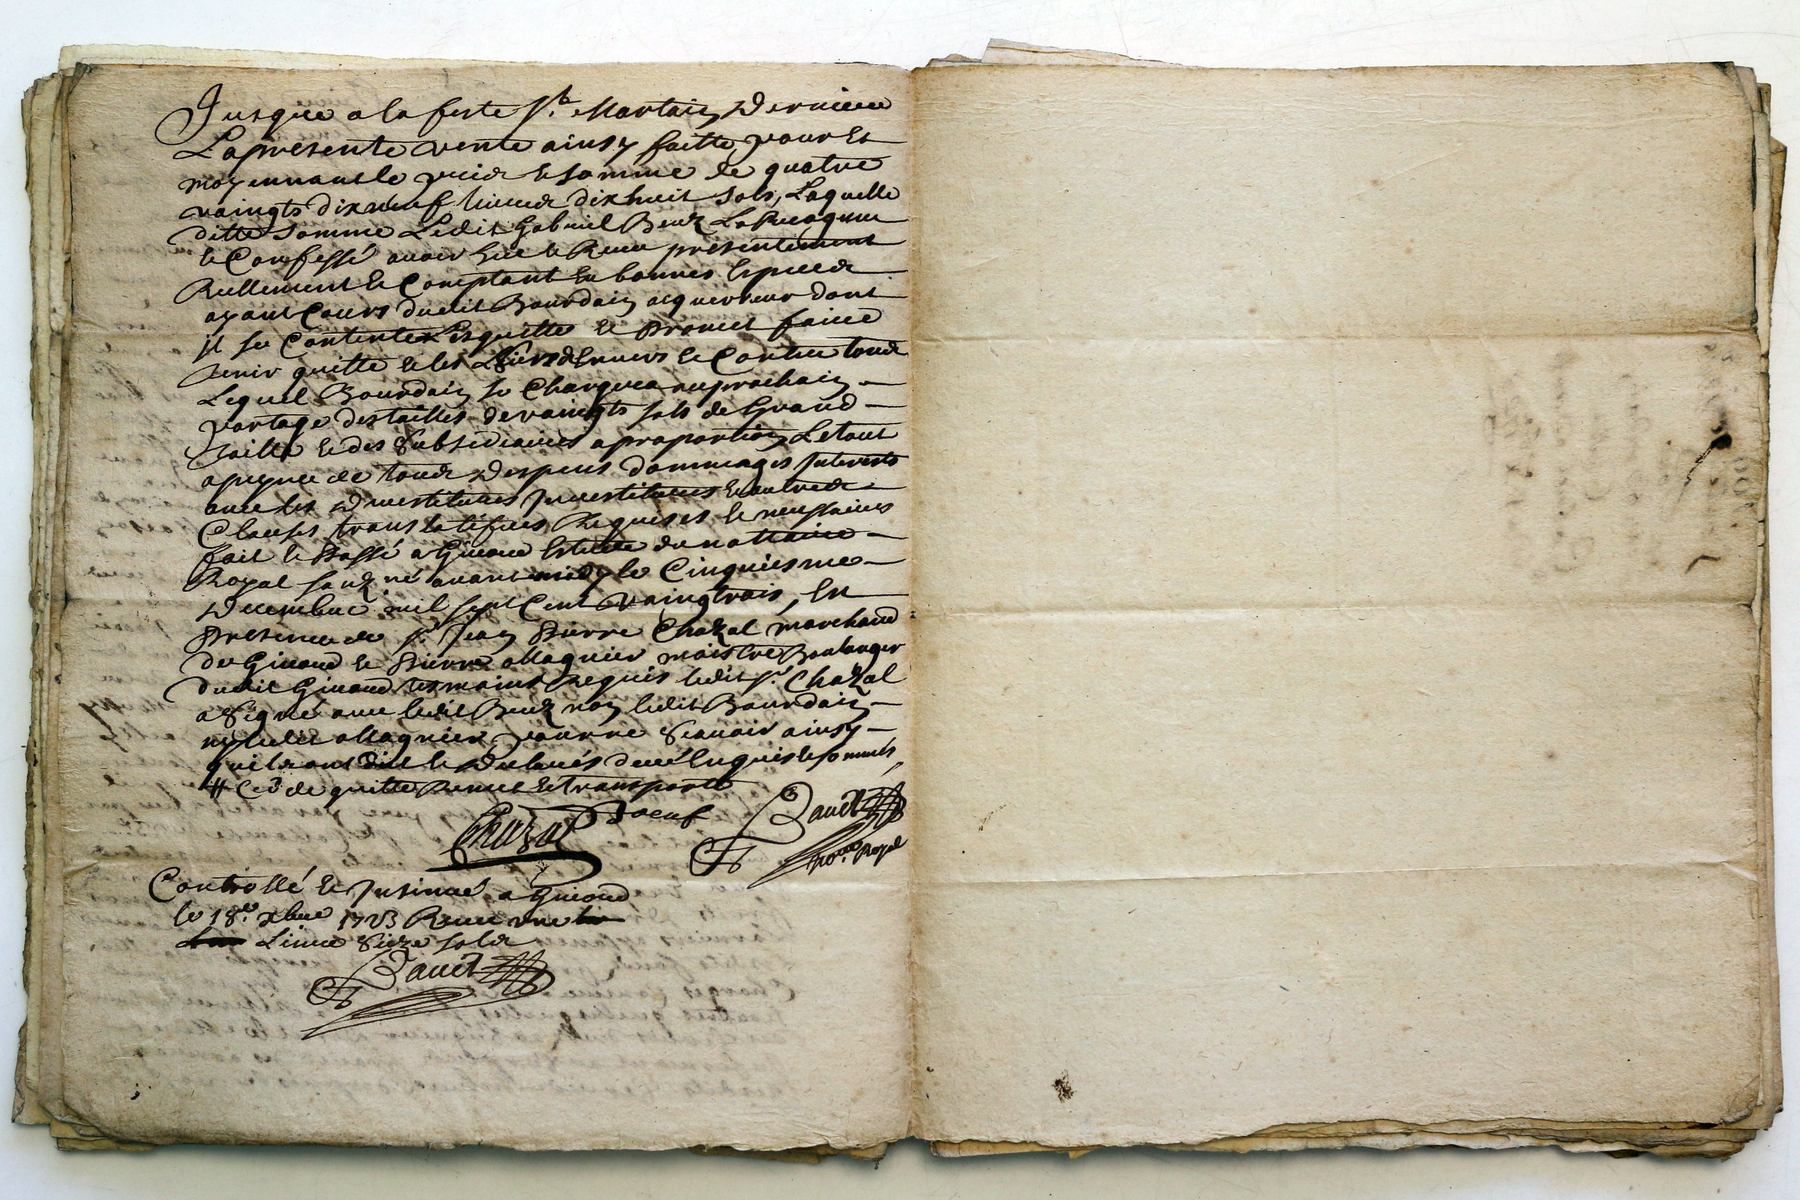 Jusque a la feste St. Martain Derniere
La presente vente ainsy faitte pour Et
moyennant le prix Et somme de quatre
vaingts dix neuf livres dix huit sols, Laquelle
ditte somme Ledit Gabriel
Et Confessé avoir Eue Et Receu presentement
Reellement Et Comptant En bonnes Especes
ayant Cours dudit Bourdain acquereur dont
il se Contente Lesquitte Et Promet faire
tenir quitte Envers Et Contre tous
Lequel Bourdain se Chargera au prochain
partage des tailles de vaingts sols de Grand
taille Et des Subsidiaires a proportion Le tout
a peyne de tous Despens dommages Interests
avec les Devestitures Investitures Et autres
Clauses translatifves Requises Et necessaires
fait Et Passé a Givord Estude du nottaire
Royal souzné avant midy le Cinquiesme
Decembre mil sept Cent vaingtrois, En
presence de sr. Jean Pierre Chazal marchand
de Givord Et Pierre Magnier maistre Boulanger
dudit Givord tesmoins Requis ledit sr. Chazal
a Signé avec ledit non ledit Bourdain
ny ledit Magnier pour ne Scavoir ainsy
quils ont dit Et Declarés de ce Enquis Et sommés
# Cede quitte Remet Et transporte
Chazal
Baudt
Royal
Controllé Et Insinué a Givord
le 18e. xbre 1723 Receu une
Livre Seize sols
Baudt